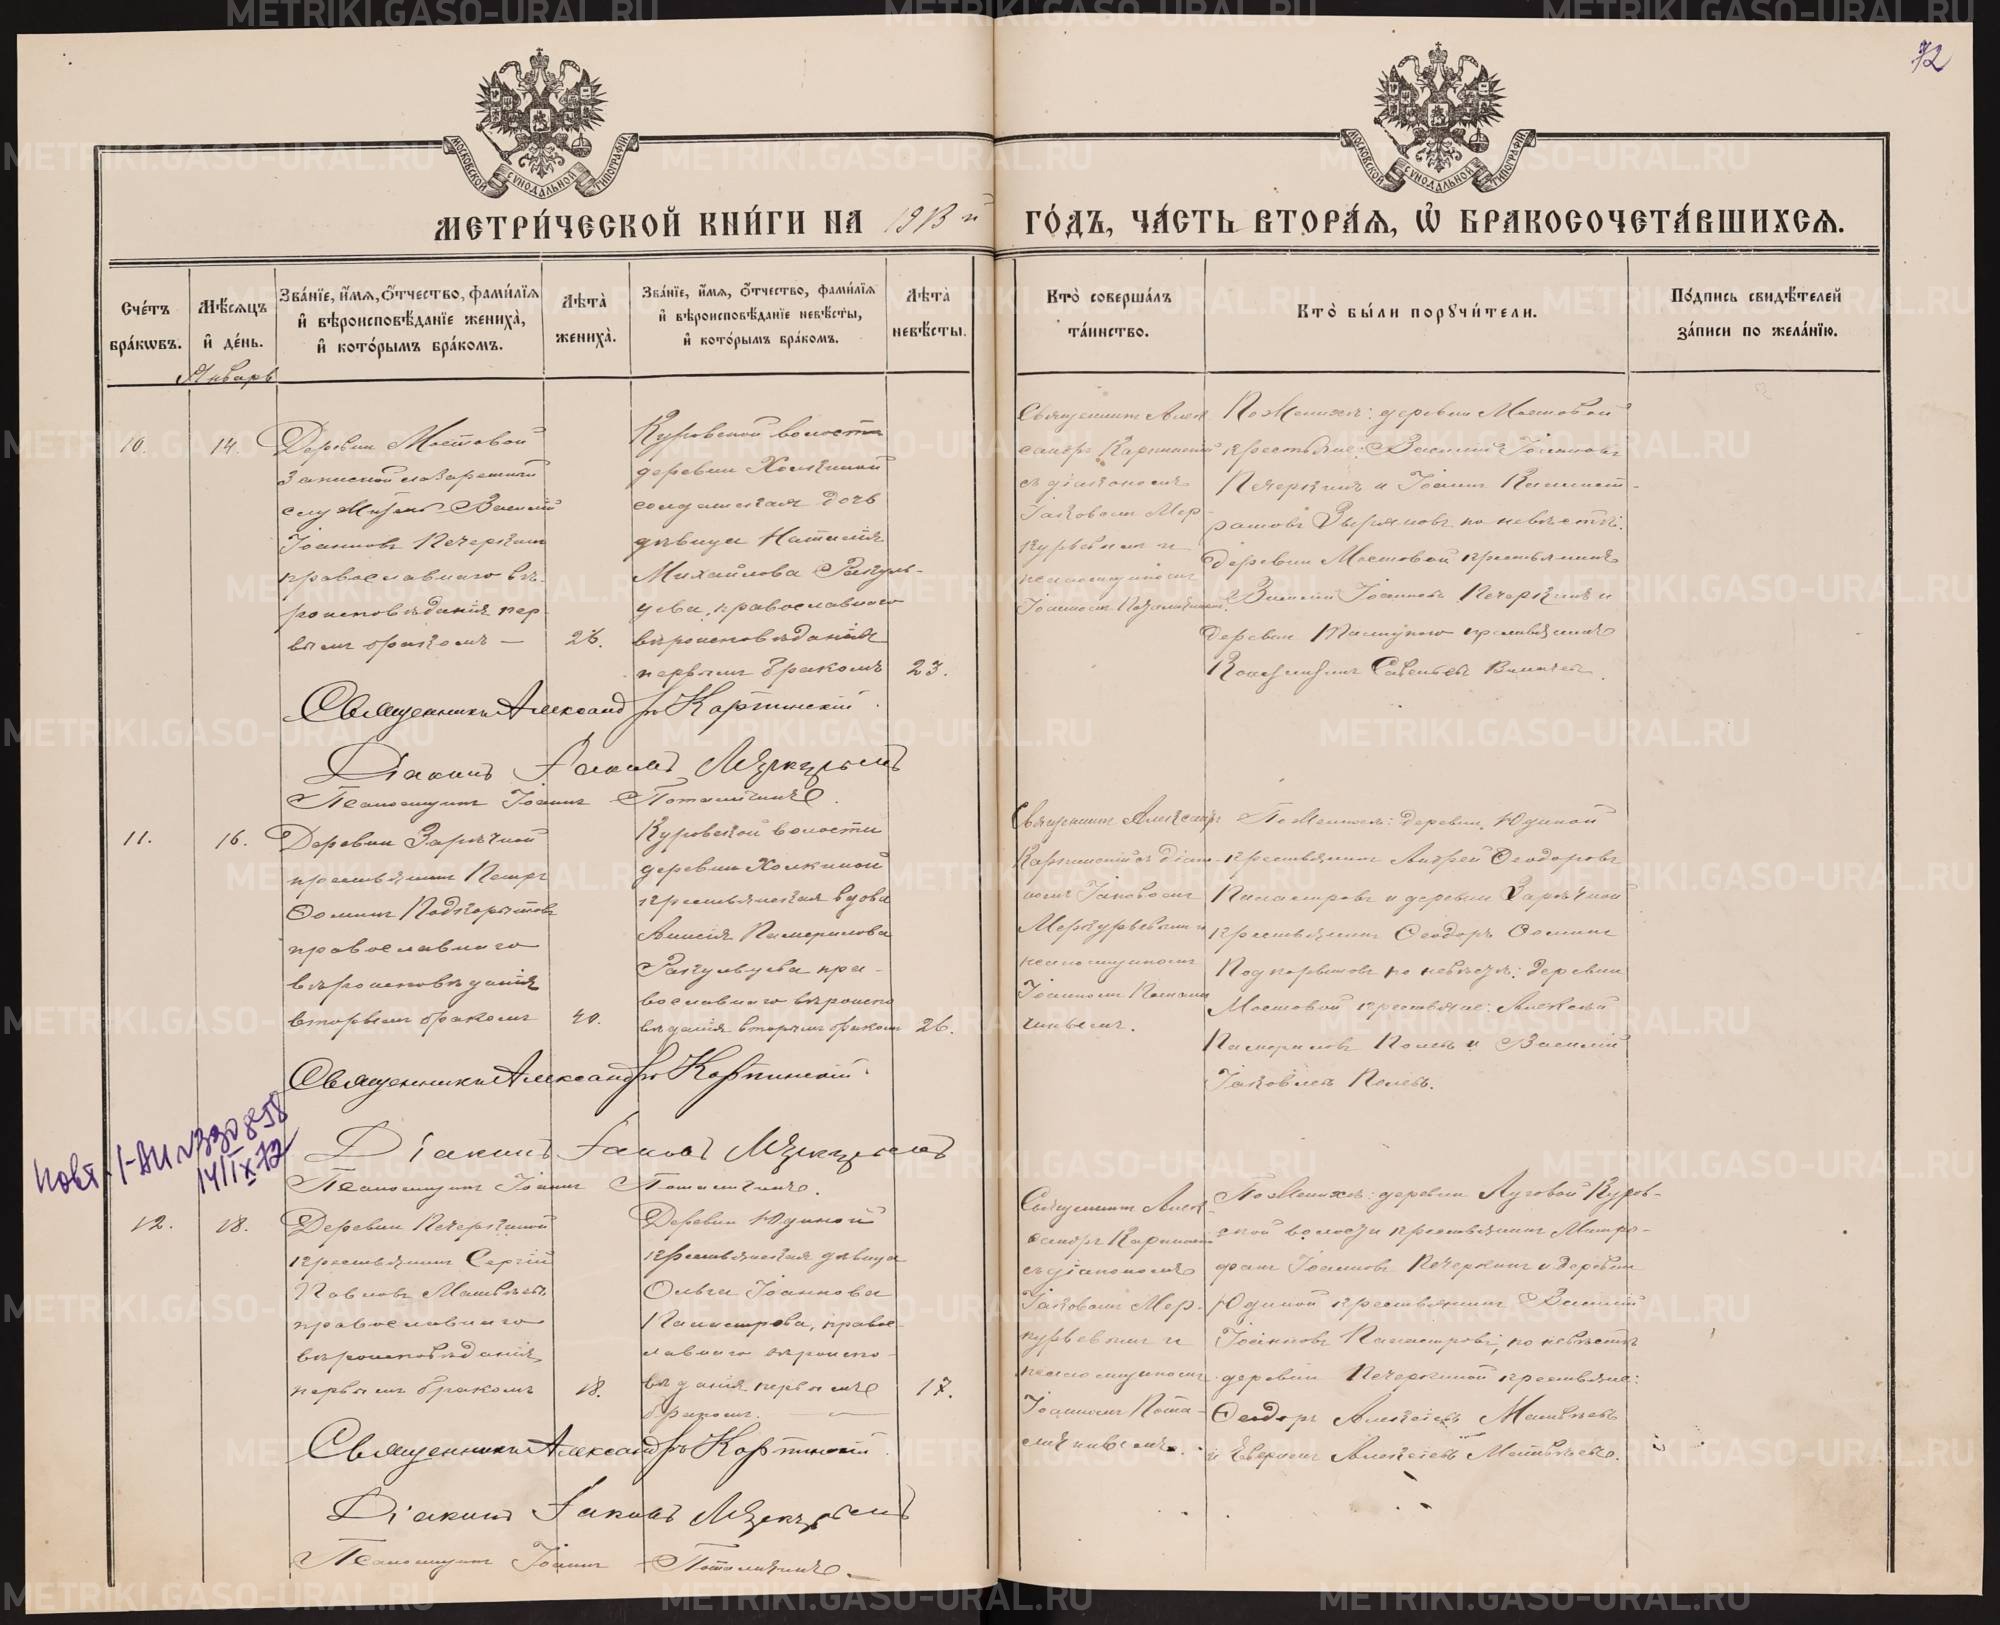 72
МОСКОВСКОЙ СѴНОДАЛЬНОЙ ТИПОГРАФІИ
МОСКОВСКОЙ СѴНОДАЛЬНОЙ ТИПОГРАФІИ
МЕТРИ́ЧЕСКОЙ КНИ́ГИ НА 1913 й ГО́ДЪ, ЧА́СТЬ ВТОРА́Я, Ѽ БРАКОСОЧЕТА́ВШИХСѦ.
Сче́тъ бра́кѡвъ.
Мѣ́сяцъ и҆ де́нь.
Зва́нїе, и҆́мя, ѻ҆́тчество, фами́лїя и҆ вѣроисповѣ́данїе жениха̀, и҆ кото́рымъ бра́комъ.
Лѣта̀ жениха̀.
Зва́нїе, и҆́мя, ѻ҆́тчество, фами́лїя и҆ вѣроисповѣ́данїе невѣ́сты, и҆ кото́рымъ бра́комъ.
Лѣта̀ невѣ́сты.
Кто̀ соверша́лъ та́инство.
Кто̀ бы́ли порꙋчи́тели.
По́дпись свидѣ́телей за́писи по жела́нїю.
Январь
10.
14.
Деревни Мостовой
Василій
Іоанновъ Печеркинъ
православнаго вѣ-
роисповѣданія пер-
вымъ бракомъ —
26.
Куровской волости
деревни Холкиной
солдатская дочь
дѣвица Наталія
Михайлова Ракуль-
цева, православнаго
вѣроисповѣданія
первымъ бракомъ
23.
Священникъ Алек
сандръ Карпинскій
съ діакономъ
Іаковомъ Мер-
курьевымъ и
псаломщикомъ
Іоанномъ
По Женихѣ: деревни Мостовой
крестьяне: Василій Іоанновъ
Печеркинъ и Іоаннъ
Зыряновъ по невѣстѣ:
деревни Мостовой крестьянинъ
Василій Іоанновъ Печеркинъ и
деревни крестьянинъ
Савельевъ
Священникъ Александръ Карпинскій.
Діаконъ Іаковъ Меркурьевъ
Псаломщикъ Іоаннъ
11.
16.
Деревни Зарѣчной
крестьянинъ Петръ
Ѳоминъ Подкорытовъ
православнаго
вѣроисповѣданія
вторымъ бракомъ
40.
Куровской волости
деревни Холкиной
крестьянская вдова
Анисія Памфилова
Ракульцева пра-
вославнаго вѣроиспо
вѣданія вторымъ бракомъ
26.
Священникъ Александръ
Карпинскій съ діако-
номъ Іаковомъ
Меркурьевымъ и
псаломщикомъ
Іоанномъ
По Женихѣ: деревни Юдиной
крестьянинъ Андрей Ѳеодоровъ
и деревни Зарѣчной
крестьянинъ Ѳеодоръ Ѳоминъ
Подкорытовъ по невѣстѣ: деревни
Мостовой крестьяне: Алексѣй
Памфиловъ Полевъ и Василій
Іаковлевъ Полевъ.
Священникъ Александръ Карпинскій.
Діаконъ Іаковъ Меркурьевъ
Псаломщикъ Іоаннъ
повт. I-АИ №330858
14/IX-72
12.
18.
Деревни Печеркиной
крестьянинъ Сергій
Павловъ Матвѣевъ
православнаго
вѣроисповѣданія
первымъ бракомъ
18.
Деревни Юдиной
крестьянская дѣвица
Ольга Іоаннова
правос-
лавнаго вѣроиспо-
вѣданія первымъ
бракомъ.
17.
Священникъ Алек-
сандръ Карпинскій
съ діакономъ
Іаковомъ Мер-
курьевымъ и
псаломщикомъ
Іоанномъ
По Женихѣ: деревни Луговой Куров-
ской волости крестьянинъ Митро-
фанъ Іоанновъ Печеркинъ и деревни
Юдиной крестьянинъ Василій
Іоанновъ по невѣстѣ
деревни Печеркиной крестьяне:
Ѳеодоръ Алексіевъ Матвѣевъ
и Алексіевъ Матвѣевъ.
Священникъ Александръ Карпинскій.
Діаконъ Іаковъ Меркурьевъ
Псаломщикъ Іоаннъ
METRIKI.GASO-URAL.RU